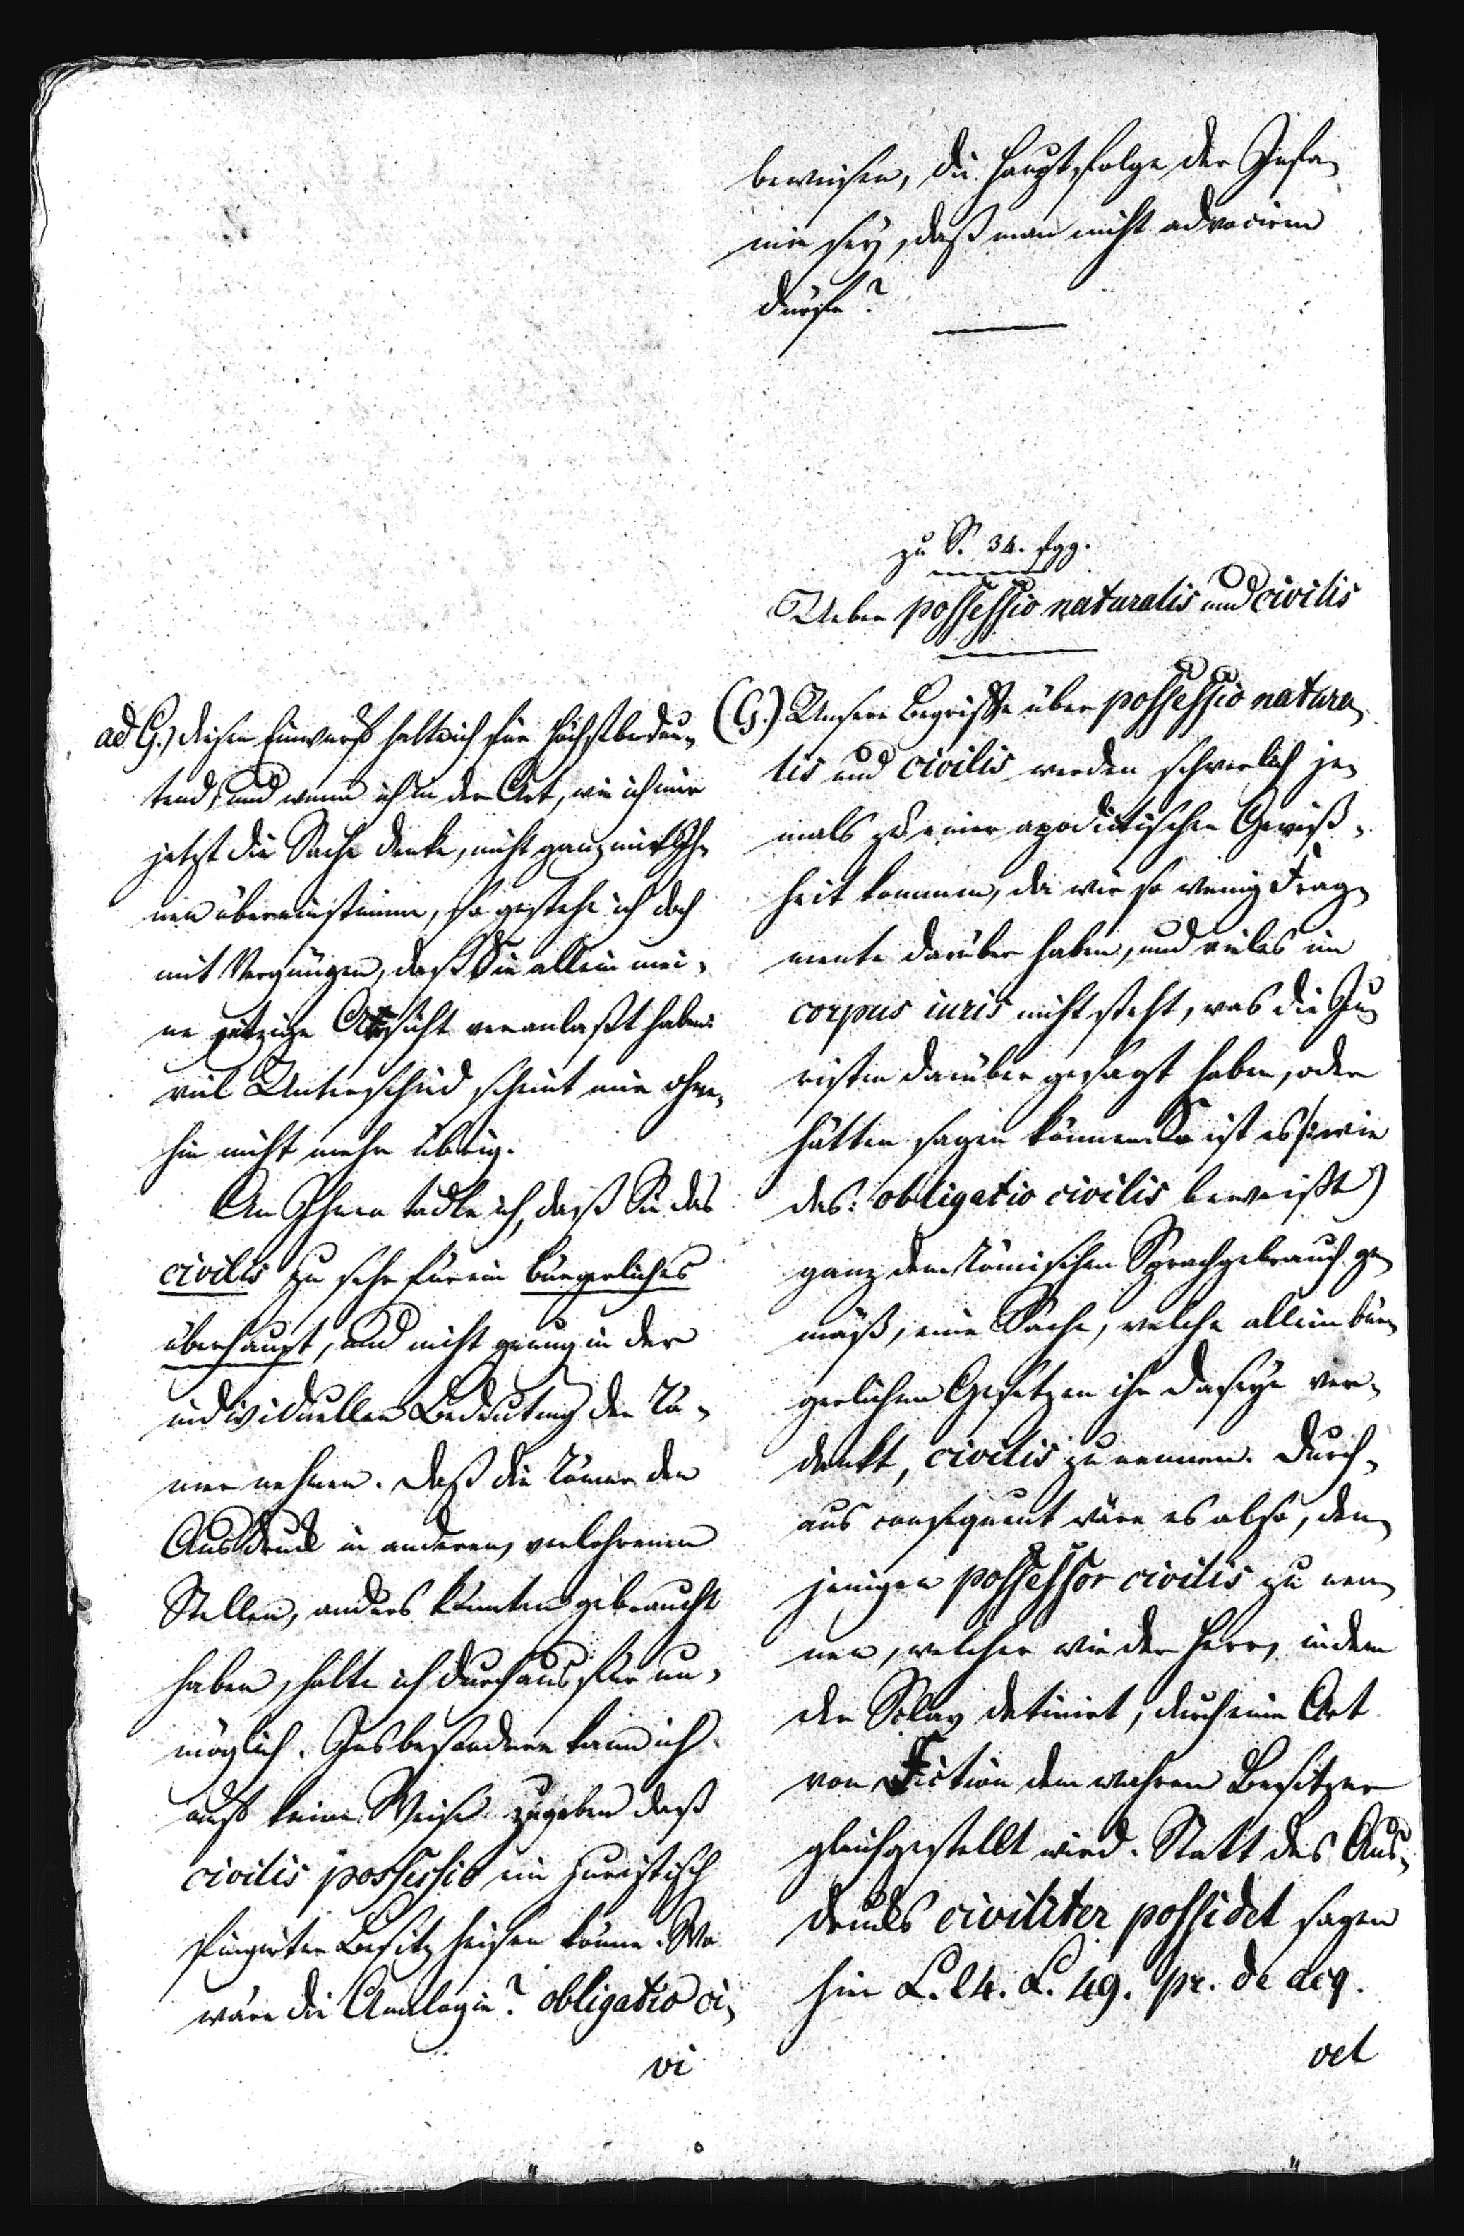 beweisen, die Hauptfolge der Infa-
mie sey, daß man nicht advociren
dürfe?
zu S. 34. fgg.
Ueber possessio naturalis und civilis
(G.) Unsere Begriffe über possessio natura-
lis und civilis werden schwerlich je-
mals zu einer apodictischen Gewiß-
heit kommen, da wir so wenig Frag-
mente darüber haben, und vieles im
corpus iuris nicht steht, was die Ju-
risten darüber gesagt haben, oder
hätten sagen können. So ist es (wie
das: obligatio civilis beweißt)
ganz dem Römischen Sprachgebrauch ge-
mäß, eine Sache, welche allein bür-
gerlichen Gesetzen ihr Daseyn ver-
dankt, civilis zu nennen. Durch-
aus consequent wäre es also, den-
jenigen possessor civilis zu nen-
nen, welcher wie der Herr, indem
der Sclav detinirt, durch eine Art
von Fiction dem wahren Besitzer
gleichgestellt wird. Statt des Aus-
drucks civiliter possidet sagen
hier L. 24. L. 49. pr. de acq.
vel
ad G.) Diesen Einwurf halte ich für höchst bedeu-
tend, und wenn ich in der Art, wie ich mir
jetzt die Sache denke, nicht ganz mit Ih-
nen übereinstimme, so gestehe ich doch
mit Vergnügen, daß Sie allein mei-
ne jetzige Ansicht veranlaßt haben:
viel Unterschied scheint mir ohne-
hin nicht mehr übrig.
An Ihnen tadle ich, daß Sie das
civilis zu sehr für ein bürgerliches
überhaupt, und nicht genug in der
individuellen Bedeutung der Rö-
mer nehmen. Daß die Römer den
Ausdruck in anderen, verlohrenen
Stellen, anders könnten gebraucht
haben, halte ich durchaus für un-
möglich. Insbesondere kann ich
auf keine Weise zugeben daß
civilis possessio ein juristisch
fingirter Besitz heisen könne. Wo
wäre die Analogie? obligatio ci-
vi